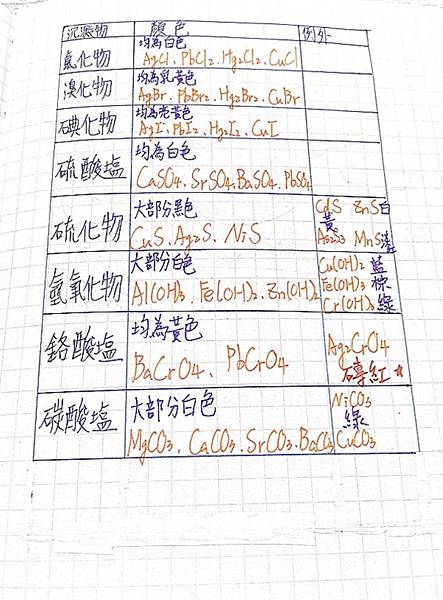 沉澱物 顏色 例外
氯化物 均為白色
AgCl、PbCl2、Hg2Cl2、CuCl
溴化物 均為乳黃色
AgBr、PbBr2、Hg2Br2、CuBr
碘化物 均為亮黃色
AgI、PbI2、Hg2I2、CuI
硫酸塩 均為白色
CaSO4、SrSO4、BaSO4、PbSO4
硫化物 大部份黑色
CuS、Ag2S、NiS
CdS ZnS白
黃
As2S3 MnS淺
氫氧化物 大部分白色
Al(OH)3、Fe(OH)2、Zn(OH)2
Cu(OH)2 藍
Fe(OH)3 棕
Cr(OH)3 綠
鉻酸塩 均為黃色
BaCrO4、PbCrO4
Ag2CrO4
磚紅 ☆
碳酸塩 大部分白色
MgCO3、CaCO3、SrCO3、BaCO3
NiCO3
綠
CuCO3